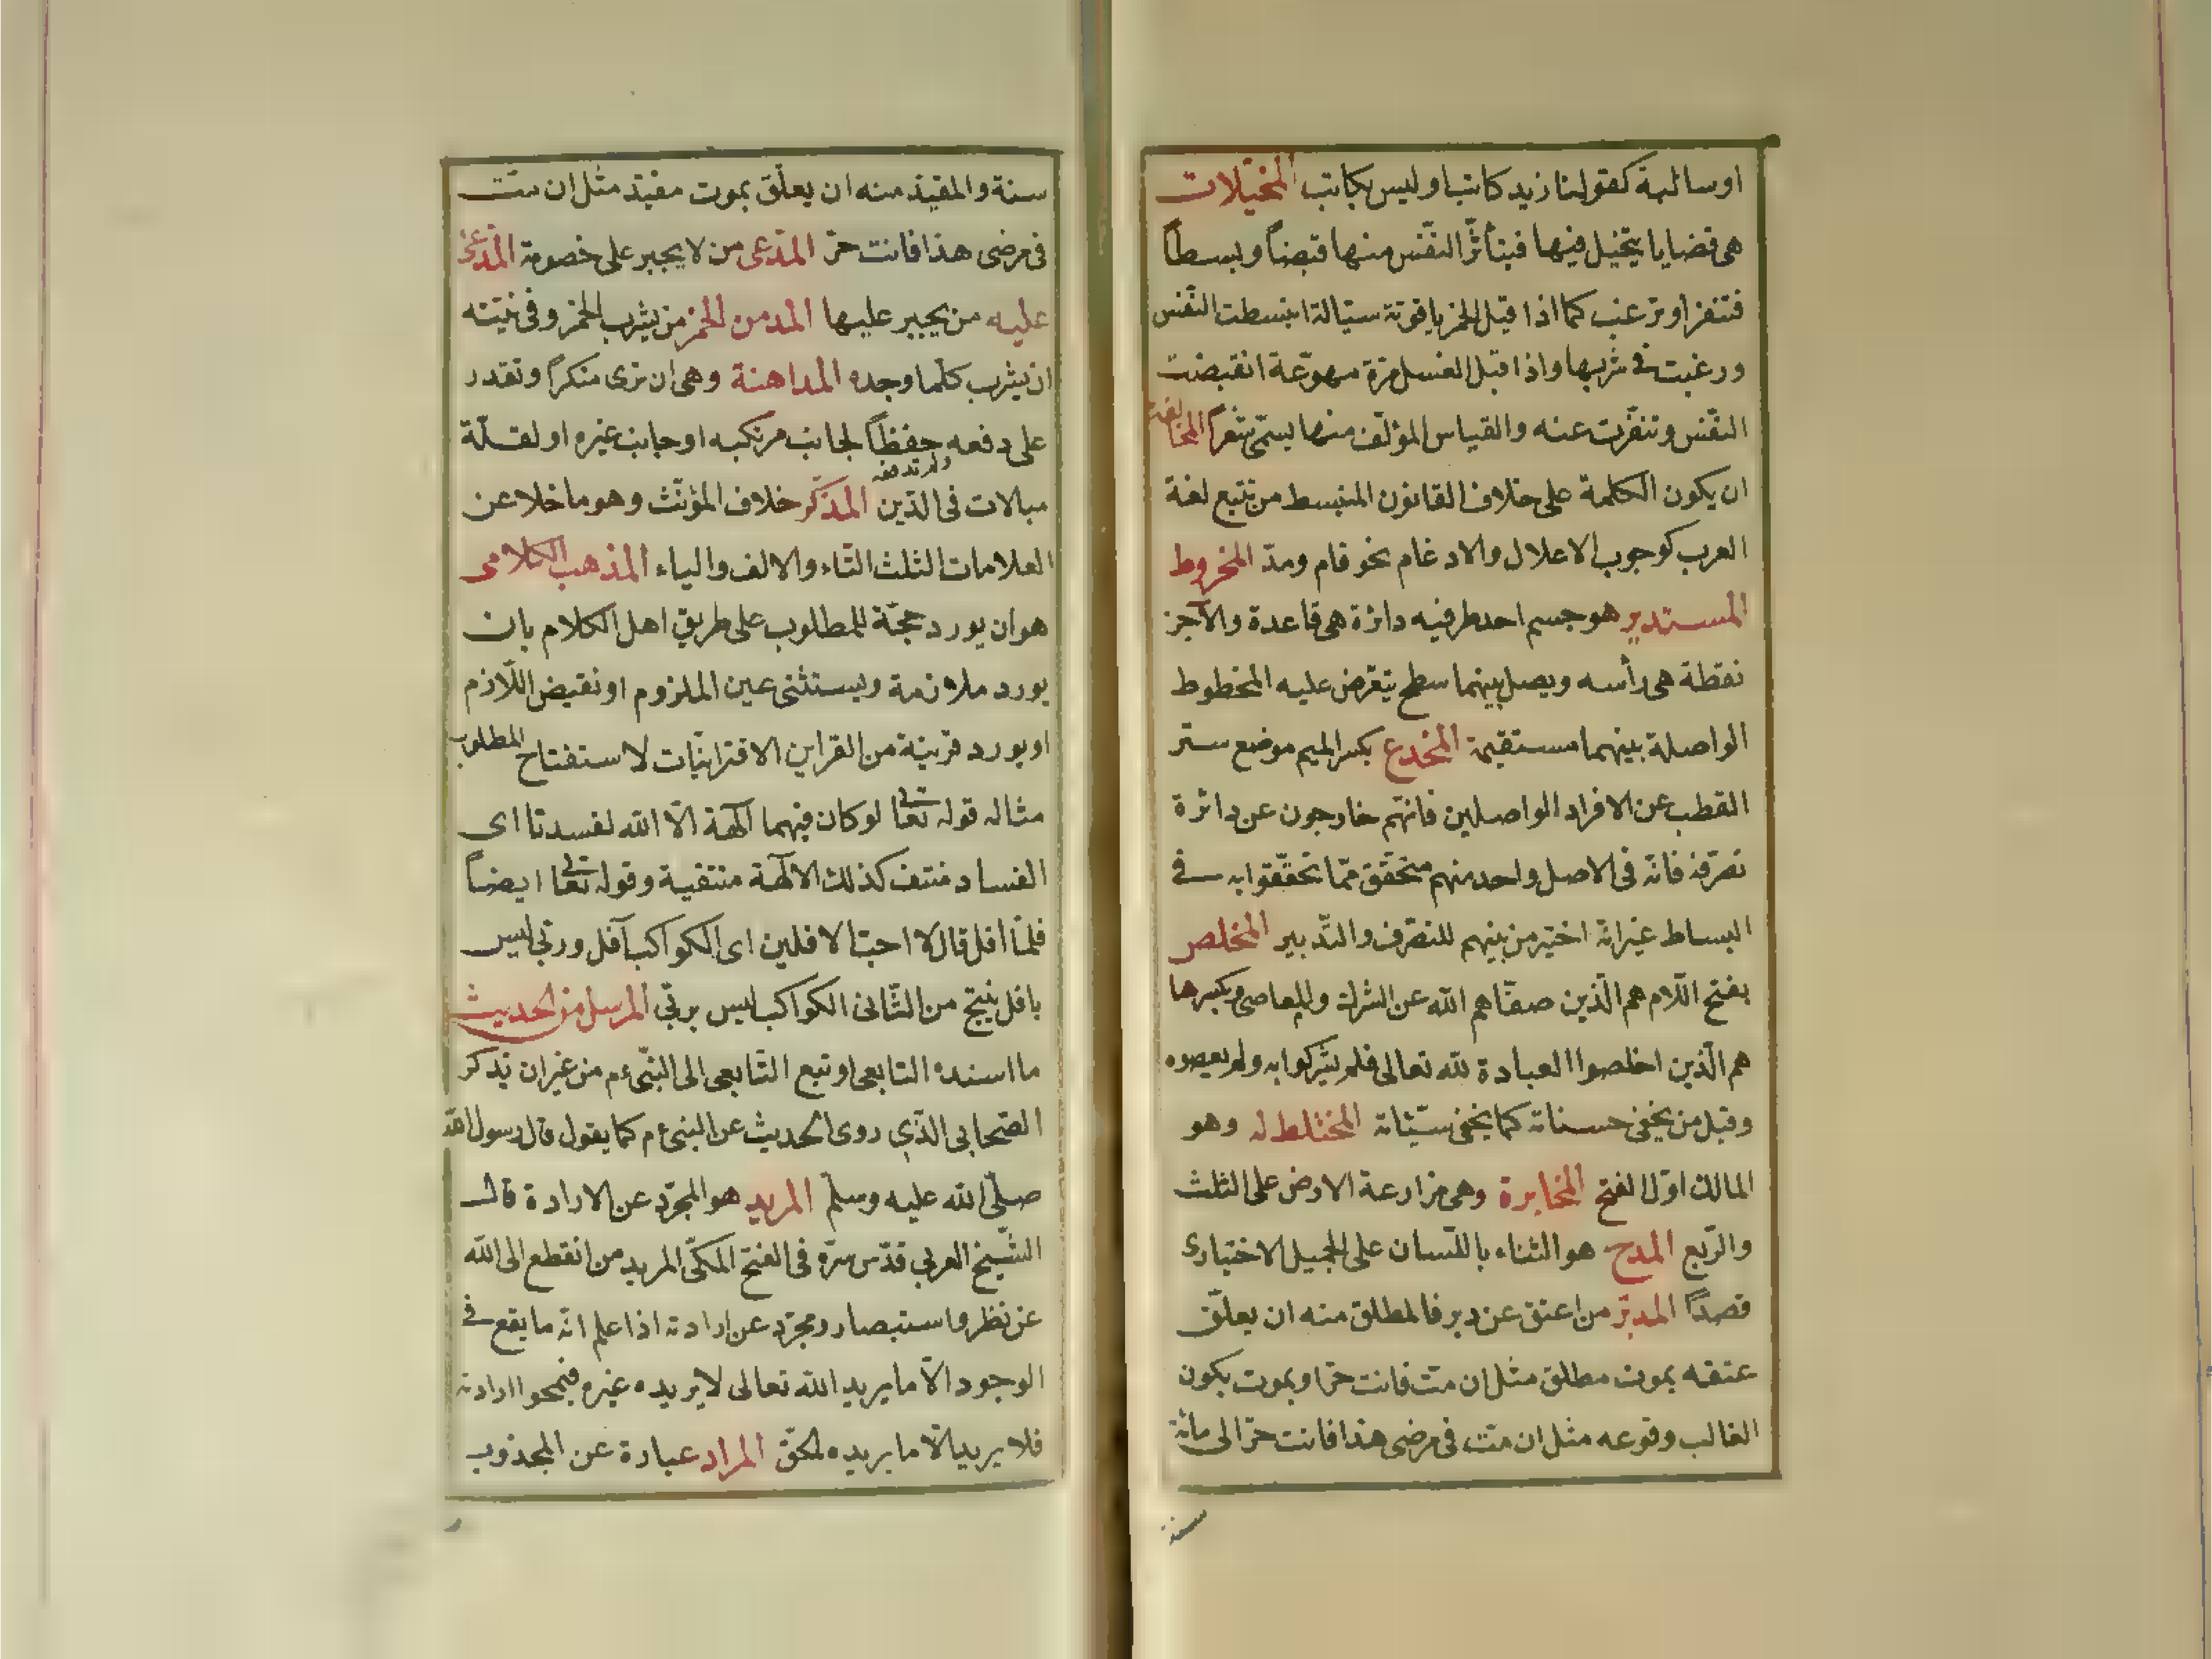 او سالبة كقولنا زيد كاتب او ليس بكاتب المخيلات
هى قضايا يتخيل فيها فيتأثر النفس منها قبضاً وبسطاً
فتنفر او ترغب كما اذا قيل الخمر ياقوتة سيالة انبسطت النفس
ورغبت فى شربها واذا قيل العسل مرة مهوعة انقبضت
النفس وتنفرت عنه والقياس المؤلف منها يسمى شعراً المخالفة
ان يكون الكلمة على خلاف القانون المنبسط من تتبع لغة
العرب كوجوب الاعلال والادغام نحو قام ومدّ المخروط
المستدير هو جسم احد طرفيه دائرة هى قاعدة والآخر
نقطة هى رأسه ويصل بينهما سطح يتعرض عليه المخطوط
الواصلة بينهما مستقيمة المخدع بكسر الميم موضع ستر
القطب عن الافراد الواصلين فانهم خارجون عن دائرة
تصرفه فانه فى الاصل واحد منهم متحقق مما تحققوا به فى
البساط غير انه اختير من بينهم للتصرف والتدبير المخلص
بفتح اللام هم الذين صفّاهم الله عن الشرك والمعاصى وبكسرها
هم الذين اخلصوا العبادة لله تعالى فلم يشركوا به ولم يعصوه
وقيل من يخفى حسناته كما يخفى سيّئاته المختلط له وهو
المالك اول الفتح المخابرة وهى مزارعة الارض على الثلث
والربع المدح هو الثناء باللسان على الجميل الاختيارى
قصداً المدبّر من اعتق عن دبر فالمطلق منه ان يعلّق
عتقه بموت مطلق مثل ان متّ فانت حرّ او بموت يكون
الغالب وقوعه مثل ان متّ فى مرضى هذا فانت حرّ الى مائة
سنة
سنة والمقيد منه ان يعلّق بموت مقيد مثل ان متّ
فى مرضى هذا فانت حرّ المدّعى من لا يجبر على خصومة المدّعى
عليه من يجبر عليها المدمن الخمر من يشرب الخمر وفى نيّته
ان يشرب كلما وجده المداهنة وهى ان ترى منكراً وتقدر
على دفعه ولم تدفعه حفظاً لجانب مرتكبه او جانب غيره او لقلّة
مبالات فى الدّين المذكّر خلاف المؤنّث وهو ما خلا عن
العلامات الثلث التاء والالف والياء المذهب الكلامى
هو ان يورد حجّة للمطلوب على طريق اهل الكلام بان
يورد ملازمة ويستثنى عين الملزوم او نقيض اللّازم
او يورد قرينة من القراين الاقترانيّات لاستفتاح المطلوب
مثاله قوله تعالى لو كان فيهما آلهة الّا الله لفسدتا اى
الفساد منتف كذلك الآلهة منتفية وقوله تعالى ايضاً
فلمّا افل قال لا احبّ الآفلين اى الكواكب آفل وربى ليس
بافل ينتج من الثّانى الكواكب ليس بربّى المرسل من الحديث
ما اسنده التابعى او تبع التّابعى الى النّبى ءم من غير ان يذكر
الصّحابى الذى روى الحديث عن النبى ءم كما يقول قال رسول الله
صلّى الله عليه وسلّم المريد هو المجرّد عن الارادة قال
الشّيخ العربى قدّس سرّه فى الفتح المكّى المريد من انقطع الى الله
عن نظر واستبصار ومجرّد عن ارادته اذا علم انه ما يقع فى
الوجود الّا ما يريد الله تعالى لا يريده غيره فيمحوا ارادته
فلا يريد الّا ما يريده الحقّ المراد عبارة عن المجذوب